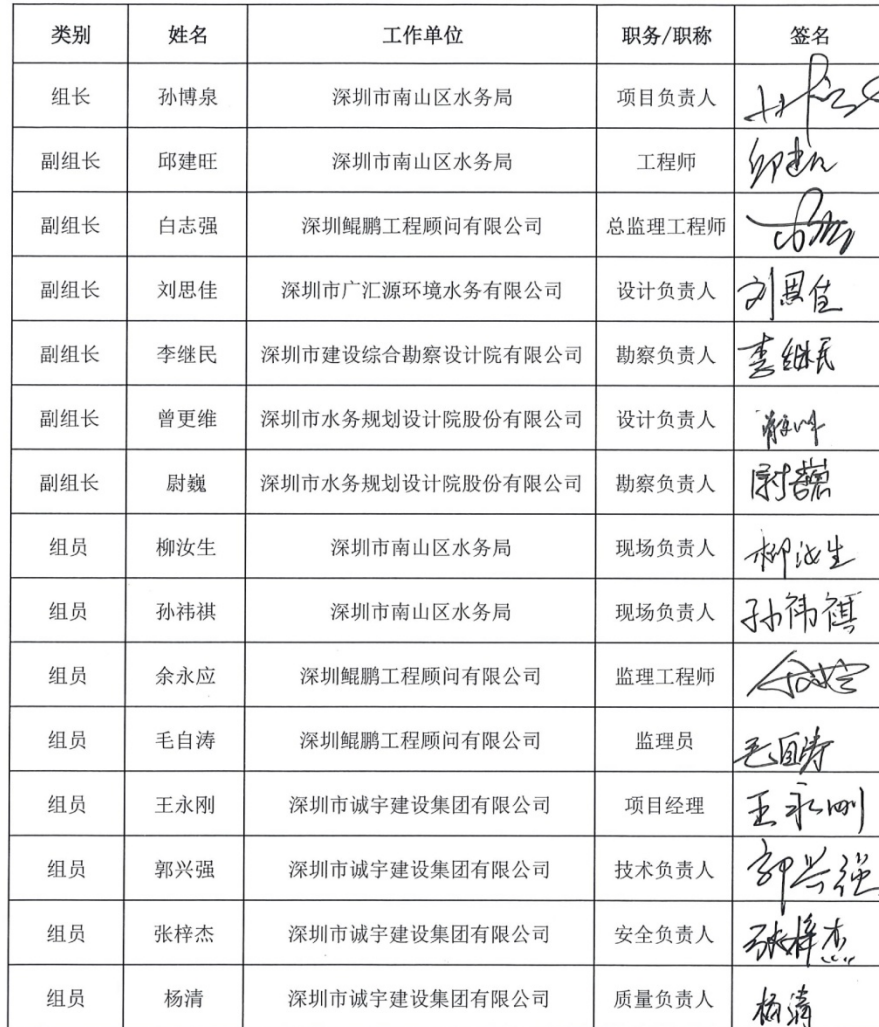 类别 姓名 工作单位 职务/职称 签名
组长 孙博泉 深圳市南山区水务局 项目负责人
副组长 邱建旺 深圳市南山区水务局 工程师
副组长 白志强 深圳鲲鹏工程顾问有限公司 总监理工程师
副组长 刘思佳 深圳市广汇源环境水务有限公司 设计负责人 刘思佳
副组长 李继民 深圳市建设综合勘察设计院有限公司 勘察负责人 李继民
副组长 曾更维 深圳市水务规划设计院股份有限公司 设计负责人
副组长 尉巍 深圳市水务规划设计院股份有限公司 勘察负责人
组员 柳汝生 深圳市南山区水务局 现场负责人 柳汝生
组员 孙祎祺 深圳市南山区水务局 现场负责人
组员 余永应 深圳鲲鹏工程顾问有限公司 监理工程师
组员 毛自涛 深圳鲲鹏工程顾问有限公司 监理员 毛自涛
组员 王永刚 深圳市诚宇建设集团有限公司 项目经理 王永刚
组员 郭兴强 深圳市诚宇建设集团有限公司 技术负责人 郭兴强
组员 张梓杰 深圳市诚宇建设集团有限公司 安全负责人 张梓杰
组员 杨清 深圳市诚宇建设集团有限公司 质量负责人 杨清